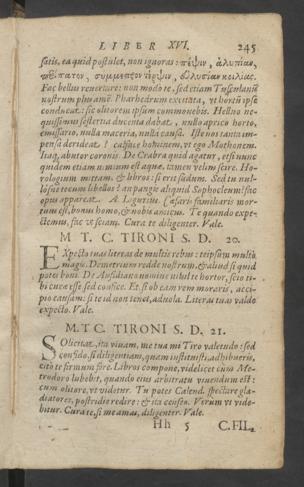 LIBER XVI. 245
satis, ea quid postulet, non ignoras: πέψιν, ἀλυπίαν,
περίπατον, σύμμετρον τέρψιν, εὐλυσίαν κοιλίας.
Fac bellus reuertare: non modo te, sed etiam Tusculanũ
nostrum plus amẽ. Parhedrum excita, vt hortũ ipse
conducat: sic olitorem ipsum commouebis. Helico ne-
quissimus sestertia ducenta dabat, nullo aprico horto,
emissario, nulla maceria, nulla causa. Iste nos tanta im-
pensa derideat? calfice hominem, vt ego Mothonem.
Itaq, abutor coronis. De Crabra quid agatur, etsi nunc
quidem etiam nimium est aquæ, tamen velim scire. Ho-
rologium mittam & libros: si erit sudum. Sed tu nul-
losne tecum libellos? an pangis aliquid Sophocleum? fac
opus appareat. A Ligurius, Cæsaris familiaris mor-
tuus est, bonus homo, & nobis amicus. Te quando expe-
ctemus, fac vt sciam. Cura te diligenter. Vale.
M T. C. TIRONI S. D. 20.
EXpecto tuas literas de multis rebus: te ipsum multo
magis. Demetrium redde nostrum, & aliud si quid
potes boni. De Aufidiano nomine nihil te hortor, scio ti-
bi curæ esse, sed confice. Et, si ob eam rem moraris, acci-
pio causam: si te id non tenet, aduola. Literas tuas valde
expecto. Vale.
M. T C. TIRONI S. D. 21.
SOlicitat, ita viuam, me tua mi Tiro valetudo: sed
confido, si diligentiam, quam instituisti, adhibueris,
cito te firmum fore. Libros compone, videlicet cum Me-
trodoro lubebit, quando eius arbitratu viuendum est:
cum olitore, vt videtur. Tu potes Calend. spectare gla-
diatores, postridie redire: & ita censeo. Verum vt vide-
bitur. Cura te, si me amas, diligenter. Vale.
Hh 5 C.FIL.